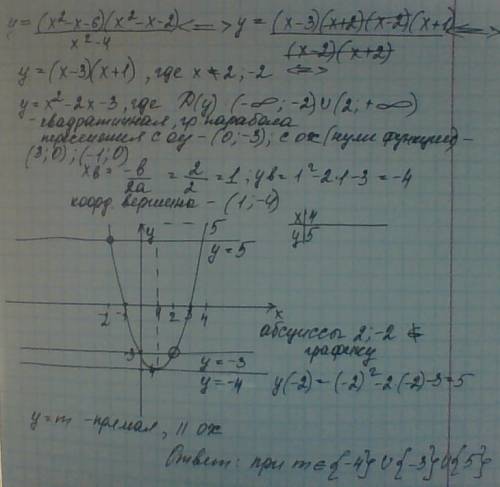 y = (x²-x-6)(x²-x-2) / x²-4 <=> y = (x-3)(x+2)(x-2)(x+1) / (x-2)(x+2) <=>
y = (x-3)(x+1), где x ≠ 2; -2 <=>
y = x²-2x-3, где D(y) (-∞; -2)∪(2; +∞)
- квадратичная, гр. парабола
пересечения с oy - (0; -3); с ox (нули функции) -
(3; 0); (-1; 0)
xв = -b/2a = 2/2 = 1; yв = 1²-2·1-3 = -4
коорд. вершина - (1; -4)
x 4
y 5
y 5
y = 5
-2 -1 1 2 3 4 x
абсциссы 2; -2 ∈
графику
-3 y = -3
y = -4
y(-2) = (-2)²-2(-2)-3=5
y = m - прямая, || ox
Ответ: при m ∈ {-4}∪{-3}∪{5}